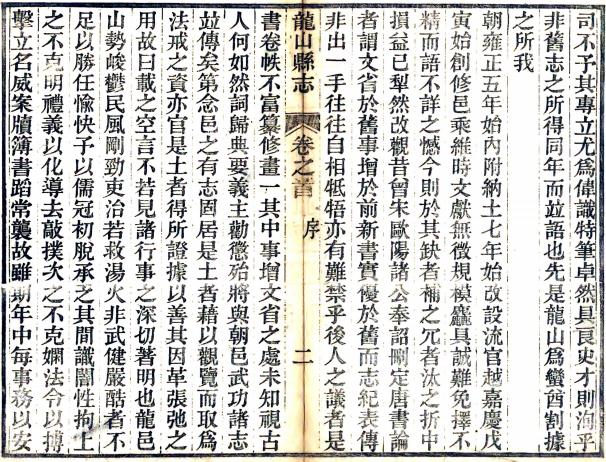 司不予其專立尤為偉識特筆卓然具良史才則洵乎
非舊志之所得同年而竝語也先是龍山為蠻酋割據
之所我
朝雍正五年始內附納土七年始改設流官越嘉慶戊
寅始創修邑乘維時文獻無徵規模麤具誠難免擇不
精而語不詳之憾今則於其缺者補之冗者汰之折中
損益已犁然改觀昔曾宋歐陽諸公奉詔刪定唐書論
者謂文省於舊事增於前新書實優於舊而志紀表傳
非出一手往往自相牴牾亦有難禁乎後人之議者是
龍山縣志
卷之首
序
二
書卷帙不富纂修畫一其中事增文省之處未知視古
人何如然詞歸典要義主勸懲殆將與朝邑武功諸志
竝傳矣第念邑之有志固居是土者藉以觀覽而取為
法戒之資亦官是土者得所證據以善其因革張弛之
用故曰載之空言不若見諸行事之深切著明也龍邑
山勢峻鬱民風剛勁吏治若救湯火非武健嚴酷者不
足以勝任愉快予以儒冠初脫承乏其間識闇性拘上
之不克明禮義以化導去敲撲次之不克嫻法令以搏
擊立名威案牘簿書蹈常襲故雖期年中每事務以安